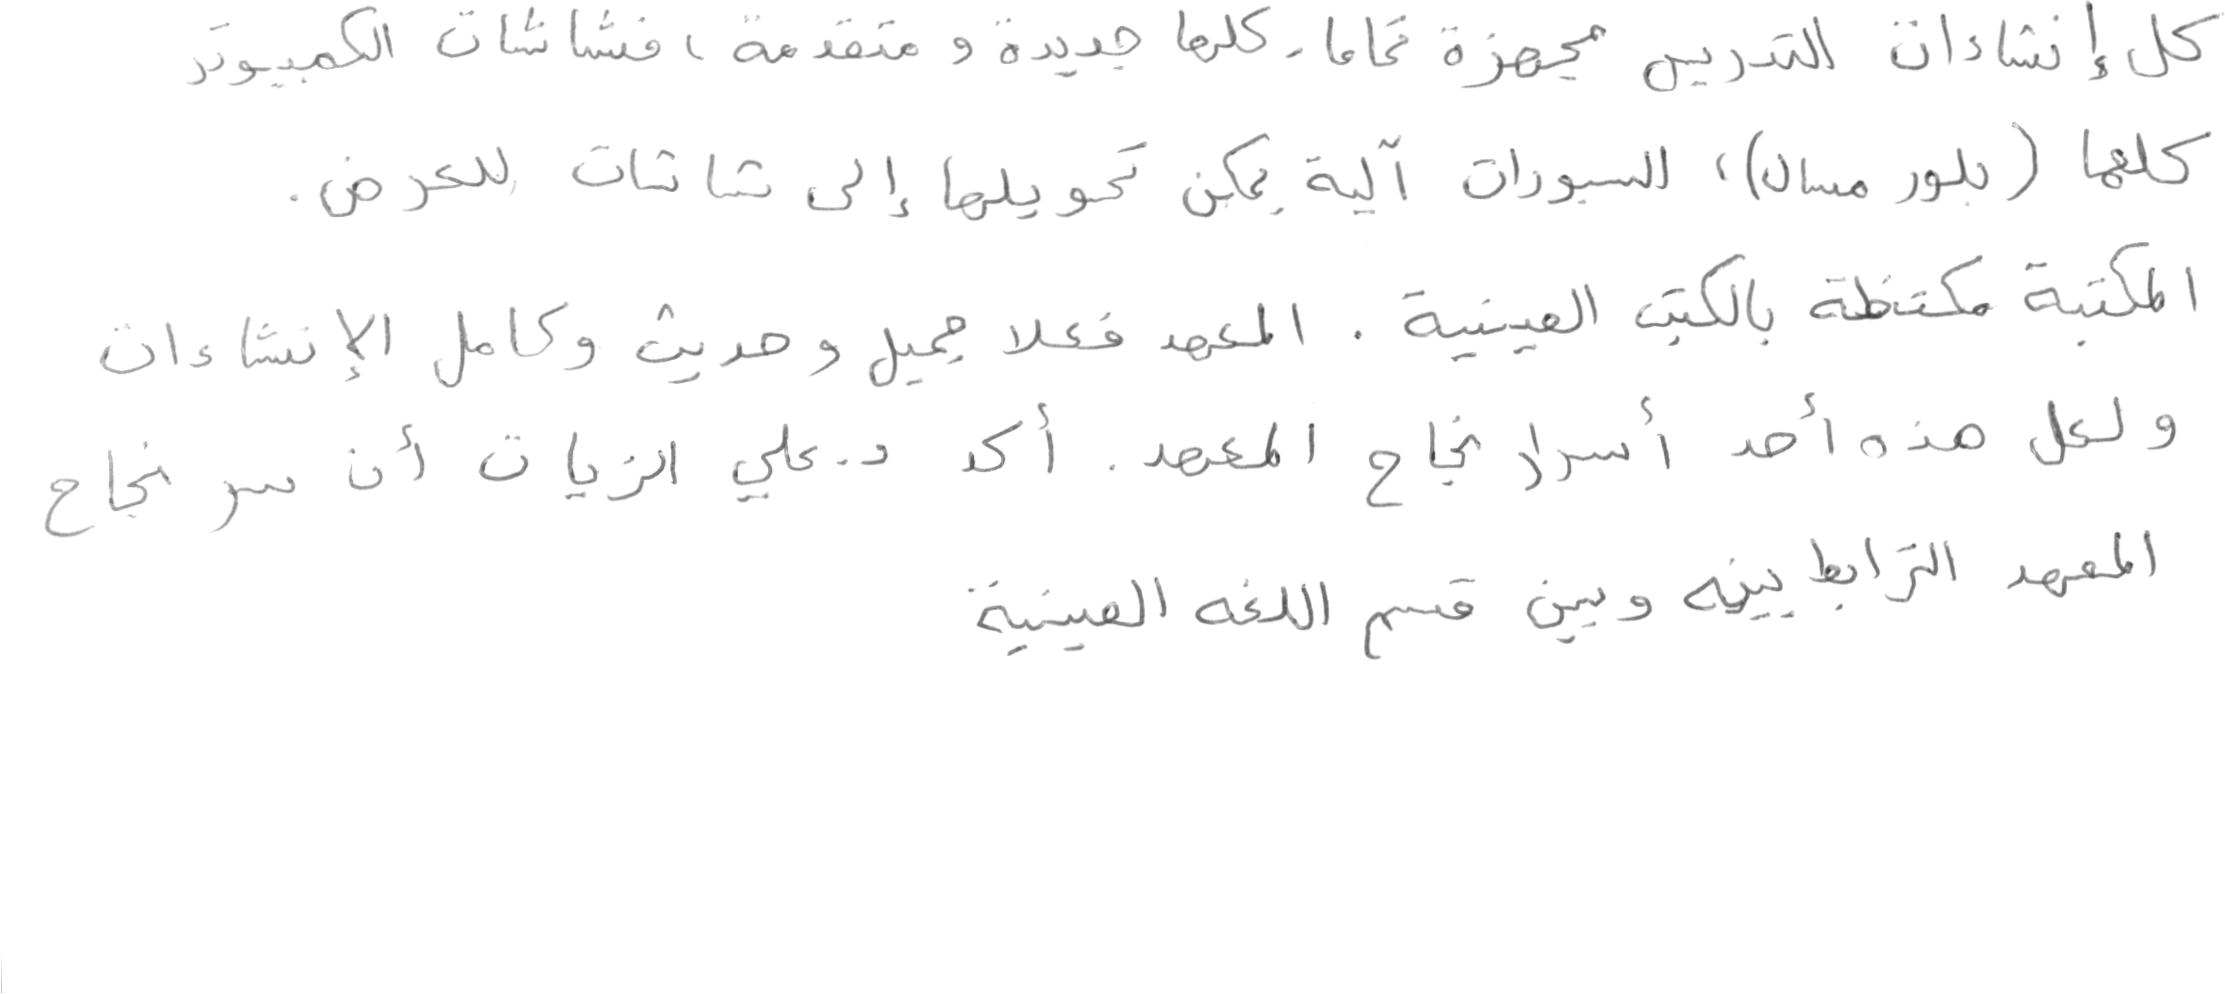 كل إنشاءات التدريس مجهزة تماما. كلها جديدة و متقدمة ، فشاشات الكمبيوتر
كلها (بلور مسال)، السبورات آلية يمكن تحويلها إلى شاشات للعرض.
المكتبة مكتظة بالكتب الصينية . المعهد فعلا جميل و حديث وكامل الإنشاءات
و لعل هذه أحد أسرار نجاح المعهد. أكد د. علي الزيات أن سر نجاح
المعهد الترابط بينه وبين قسم اللغه الصينية